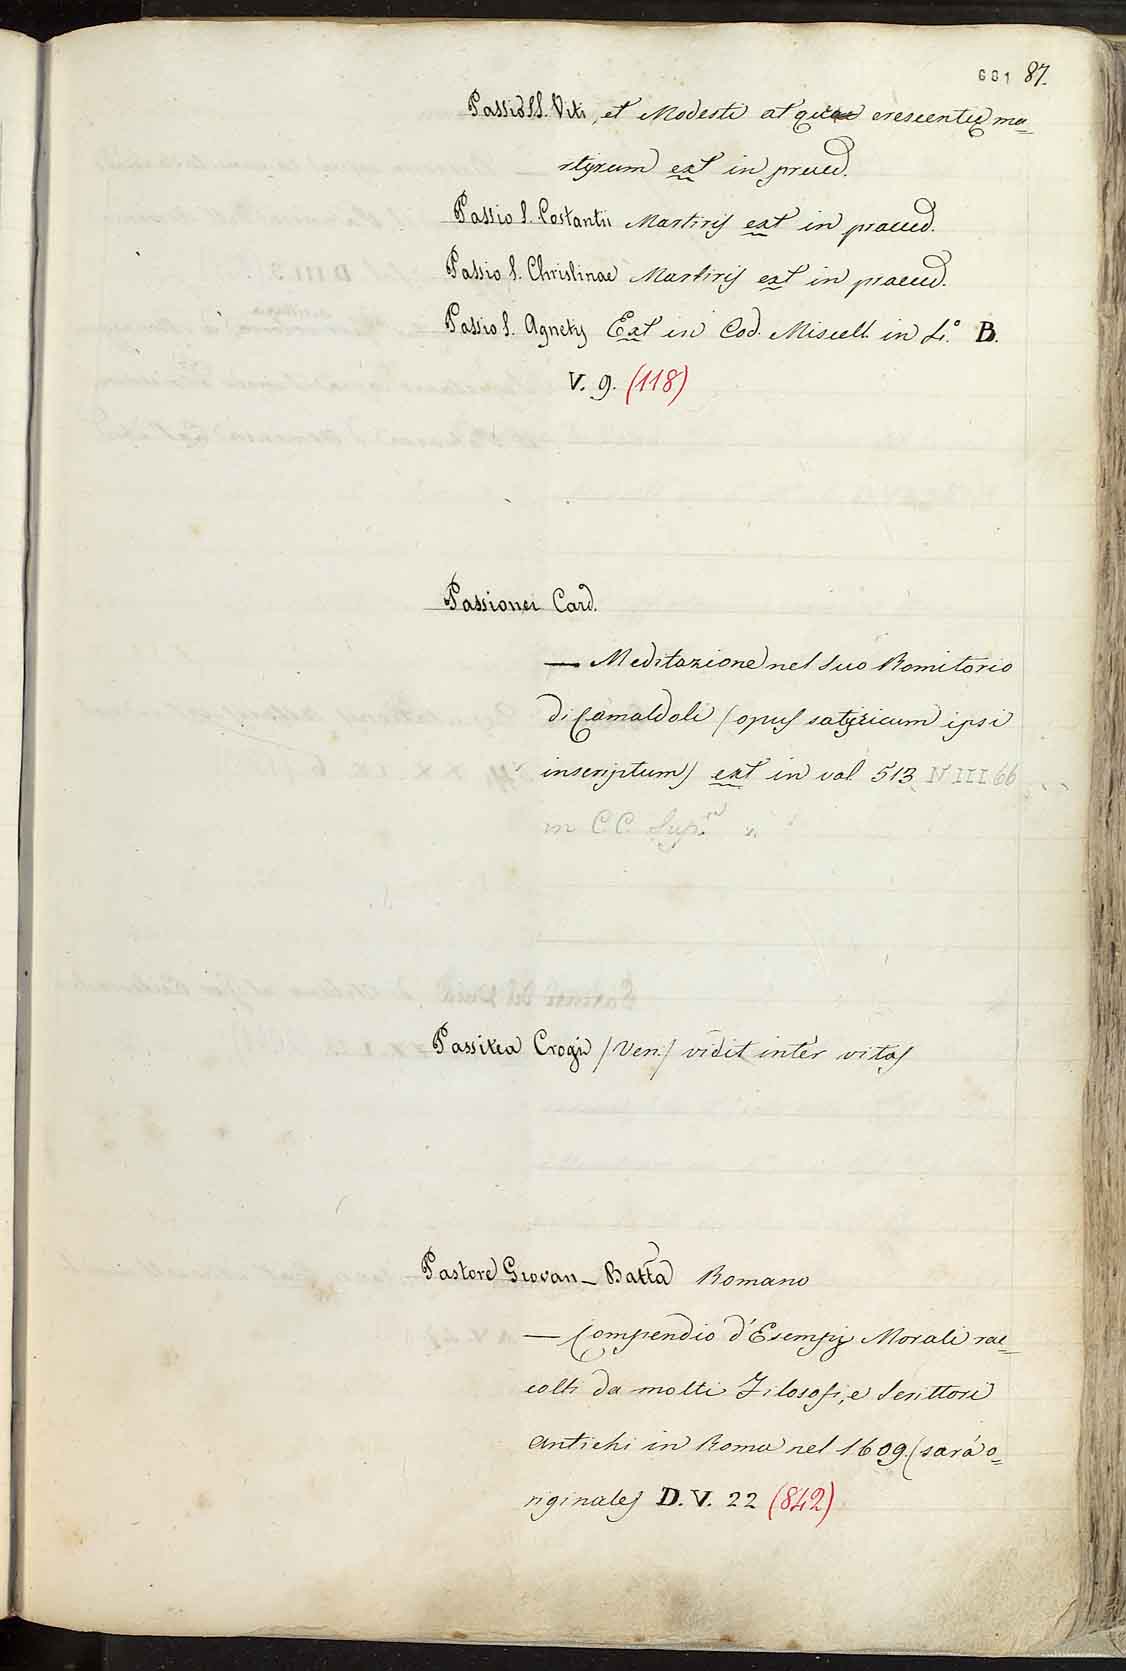 681 87.
Passio SS. Viti, et Modesti atque crescentię ma=
rtyrum ext in preced.
Passio S. Costantii Martiris ext in praeced.
Passio S. Christinae Martiris ext in praeced.
Passio S. Agnetis Ext in Cod. Miscell. in 4.° B.
V. 9. (118)
Passionei Card.
— Meditazione nel suo Romitorio
di Camaldoli (opus satyricum ipsi
inscriptum) ext in vol. 513 N III 66
in C.C. Sup.
Passitea Crogi (Ven.) vidit inter vitas
Pastore Giovan-Batta Romano
— Compendio d'Esempj Morali rac=
colti da molti Filosofi, e Scrittori
antichi in Roma nel 1609. (sarà o=
riginale) D. V. 22 (842)